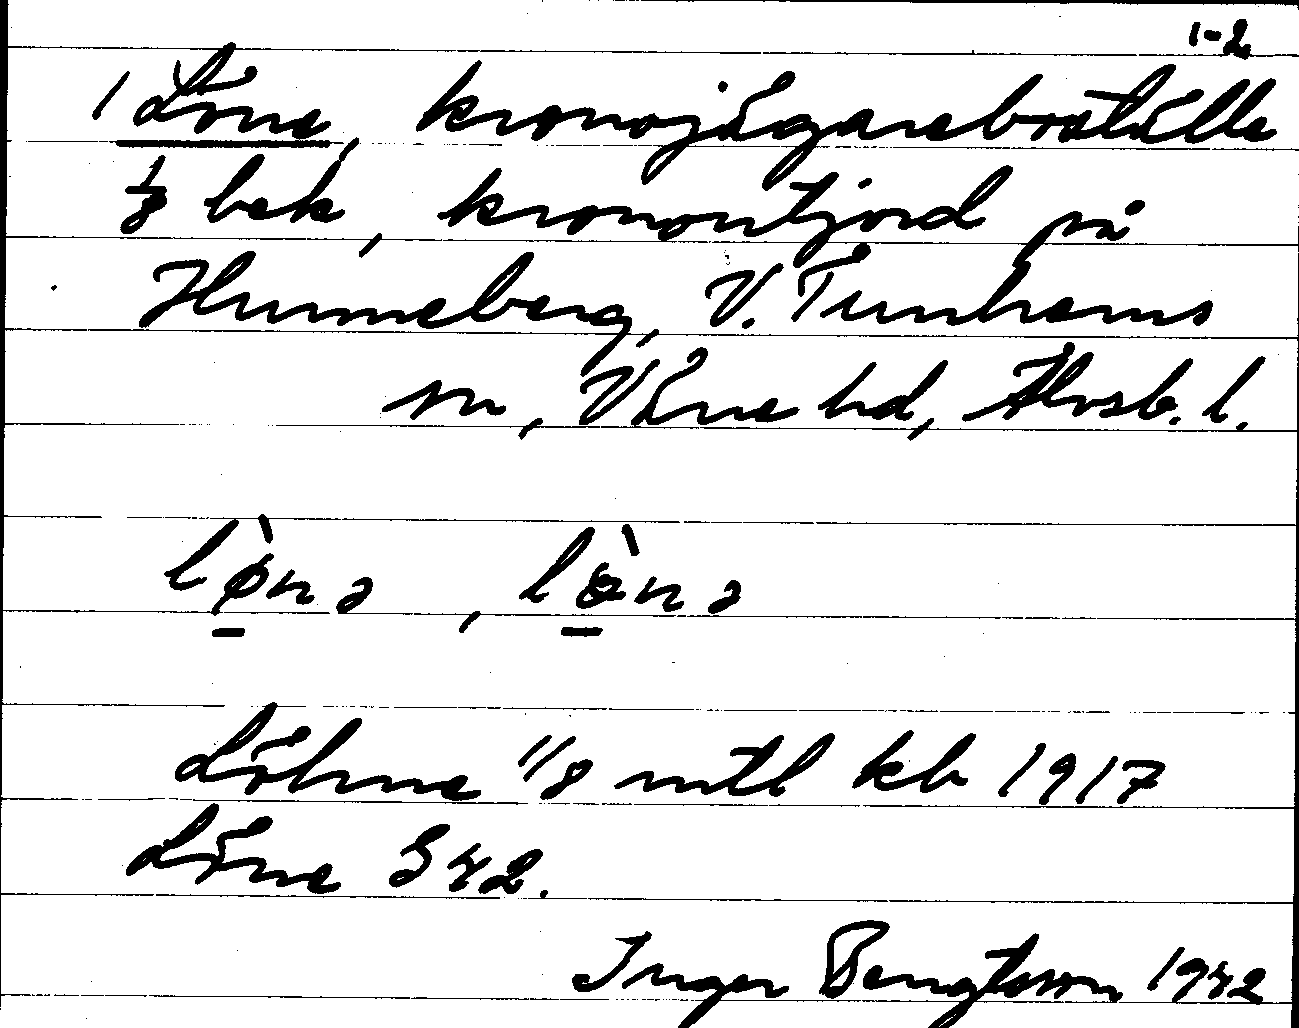 1-2
1 Löne, kronojägareboställe
1/8 bek, kronoutjord på
Hunneberg, V. Tunhems
sn, Väne hd, Älvsb. l.
lø̀nə, lö̀nə
Löhne 1/8 mtl kb 1917
Löne J 42.
Inger Bengtsson 1942